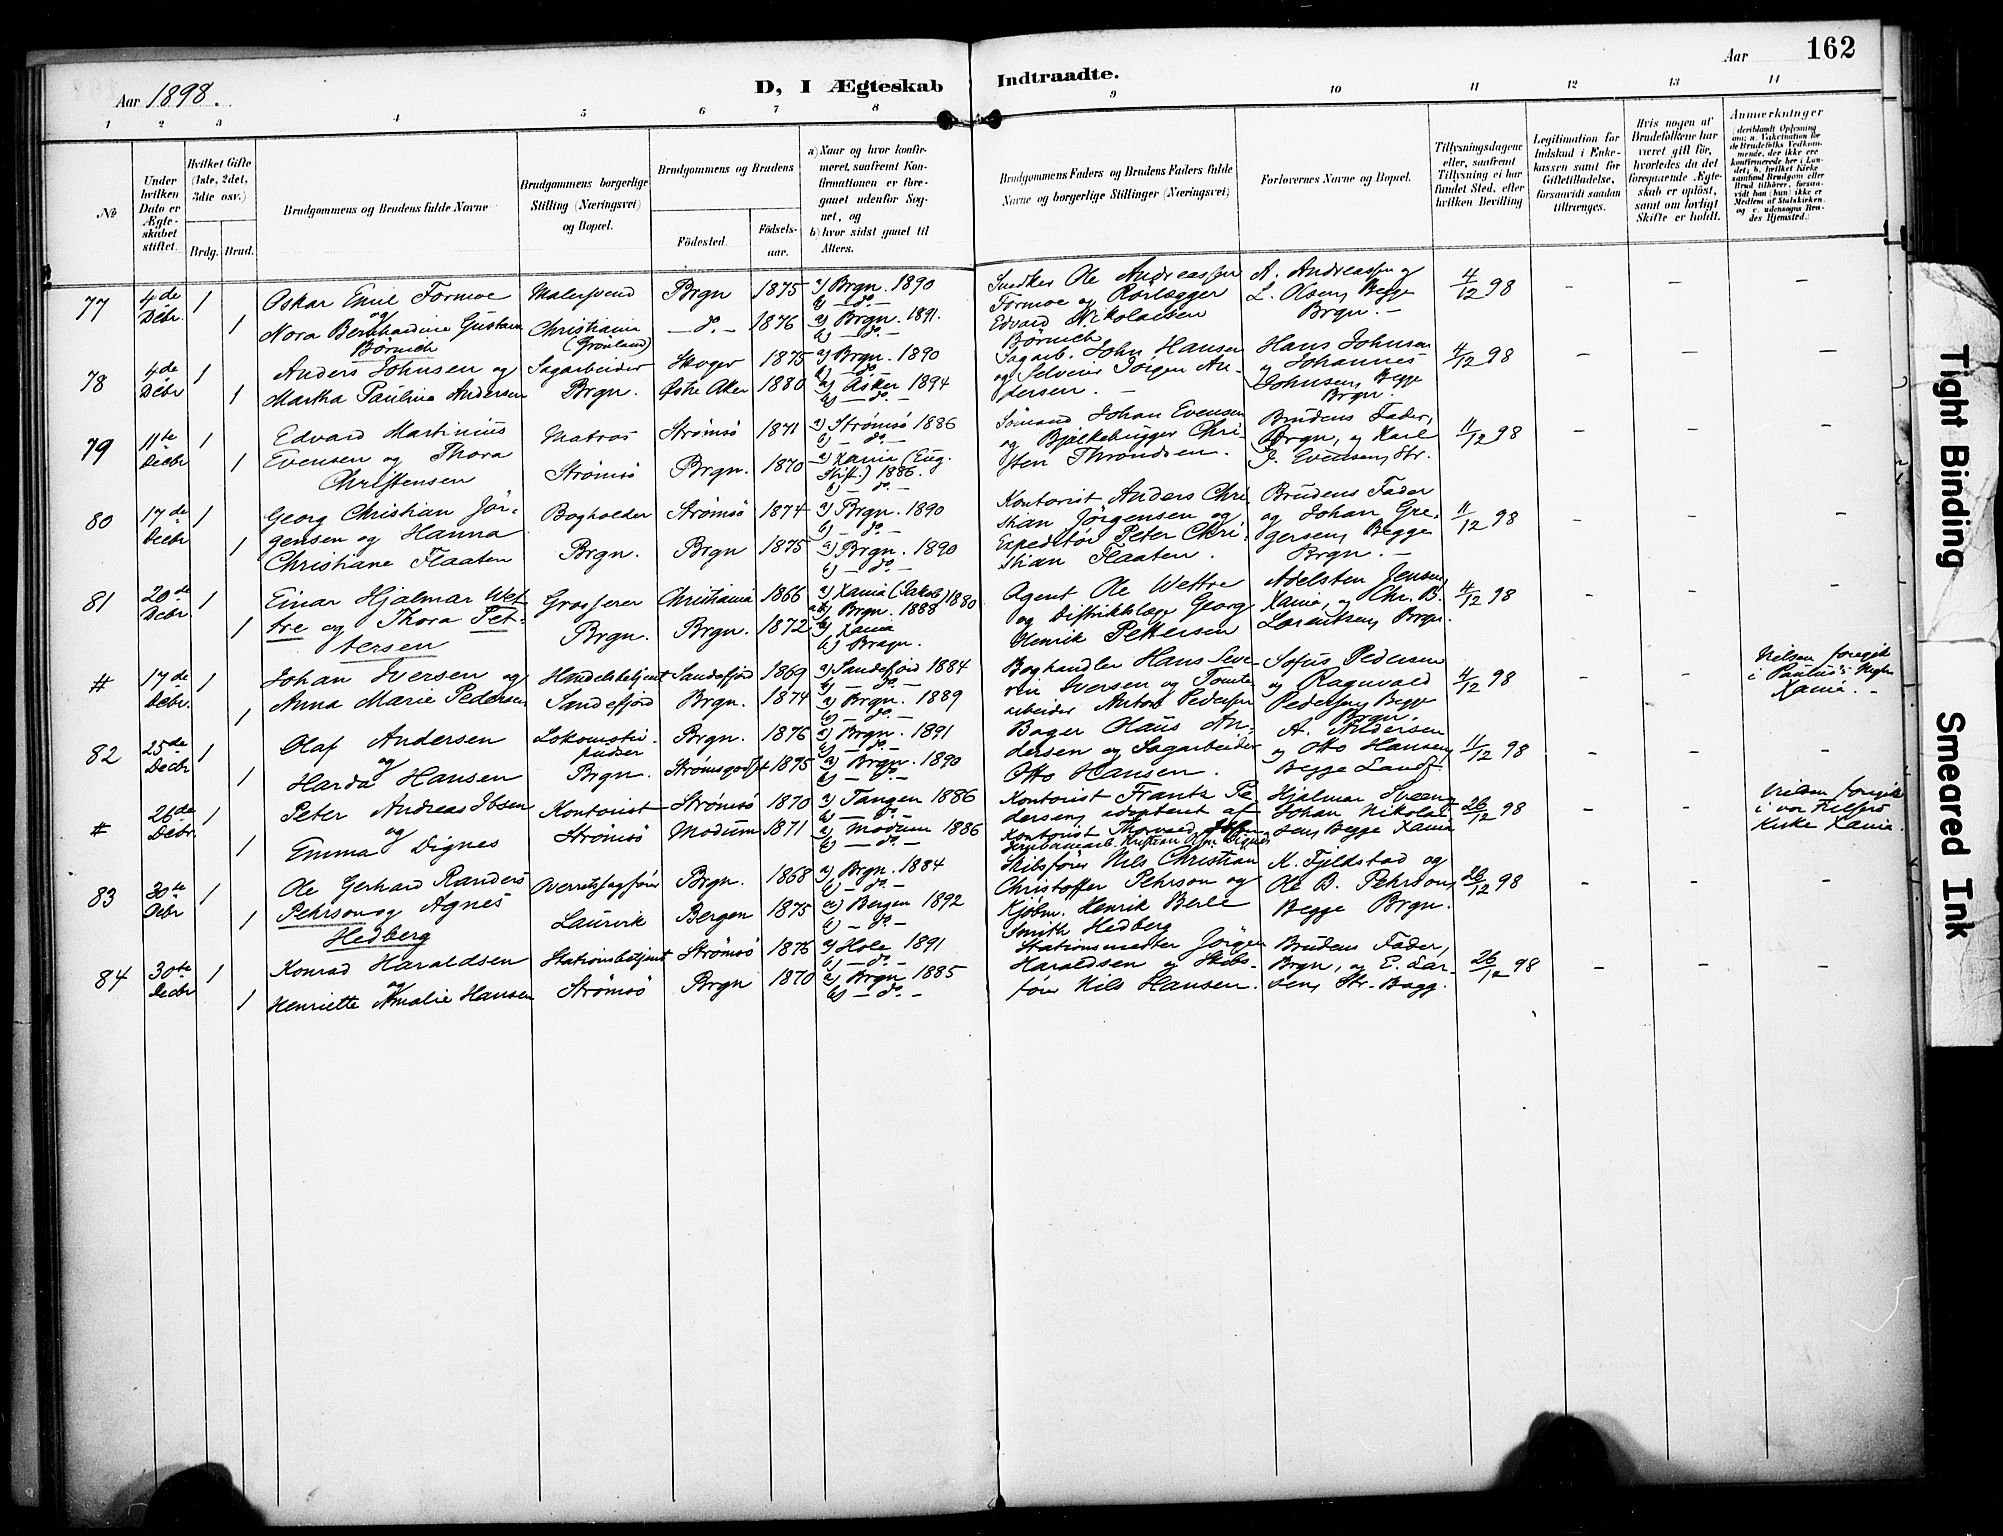 162
Aar 1898.
D, I Ægteskab Indtraadte.
Aar
1 2 3 4 5 6 7 8 9 10 11 12 13 14
No
Under hvilken Dato er Ægteskabet stiftet.
Hvilket Gifte (1ste, 2det, 3die osv.)
Brdg. Brud.
Brudgommens og Brudens fulde Navne
Brudgommens borgerlige Stilling (Næringsvei) og Bopæl.
Brudgommens og Brudens
Födested.
Födselsaar.
a) Naar og hvor konfirmeret, saafremt Konfirmationen er foregaaet udenfor Sognet, og
b) hvor sidst gaaet til Alters.
Brudgommens Faders og Brudens Faders fulde Navne og borgerlige Stillinger (Næringsvei)
Forlovernes Navne og Bopæl.
Tillysningsdagene eller, saafremt Tillysning ei har fundet Sted, efter hvilken Bevilling
Legitimation for Indskud i Enkekassen samt for Giftetilladelse, forsaavidt saadan tiltrænges.
Hvis nogen af Brudefolkene har været gift før, hvorledes da det foregaaende Ægteskab er opløst, samt om lovligt Skifte er holdt.
Anmerkninger
77 4de Debr. 1 1
Oskar Emil Formoe
og
Nora Bernhardine Gustava
Börnich
Malersvend
Christiania
(Grönland)
Brgn 1875
— do. — 1876
a) Brgn. 1890
b) — do. —
a) Brgn. 1891.
b) — do. —
Snedker Ole Andreassen
Formoe og Rörlægger
Edvard Nikolaisen
Börnich
A. Andreassen og
L. Olsen, Begge
Brgn. —
4/12 98 – – – –
78 4de Debr 1 1
Anders Johnsen og
Martha Paulina Andersen
Sagarbeider
Brgn.
Skoger 1875
Østre Aker 1880
a) Brgn. 1890
b) — do —
a) Asker 1894
b) — do. —
Sagarb. John Hansen
og Selveier Jörgen An-
dersen. —
Hans Johnsen
og Johannes
Johnsen, Begge
Brgn.
4/12 98 – – – –
79 11te Decbr 1 1
Edvard Martinius
Evensen og Thora
Christensen
Matros
Strömsö
Strömsö 1871
Brgn. 1870
a) Strömsö 1886
b) — do. —
a) Xania (Eug.
Stift.) 1886.
b) — do. —
Sömand Johan Evensen
og Bjelkebugger Chri-
sten Throndsen.
Brudens Fader,
Brgn, og Karl
J. Evensen, Str.
11/12 98 – – – –
80 17de Decbr 1 1
Georg Christian Jör-
gensen og Hanna
Christiane Flaaten
Bogholder
Brgn.
Strömsö 1874
Brgn 1875
a) Brgn. 1890
b) — do. —
a) Brgn. 1890
b) — do. —
Kontorist Anders Chri
stian Jörgensen og
Expeditör Peter Chri
stian Flaaten.
Brudens Fader
og Johan Gre-
gersen, Begge
Brgn. —
11/12 98 – – – –
81 20de Debr. 1 1
Einar Hjalmar Wet-
tre og Thora Pet-
tersen
Grosserer
Brgn.
Christiania 1866
Brgn. 1872
a) Xania (Jakob) 1880
a) Brgn. 1888
b) Xania
b) Bragn.
Agent Ole Wettre
og Distriktslæge Georg
Henrik Pettersen
Adelsten Jensen
Xania, og Chr. B.
Lorentsen, Brgn.
4/12 98 – – – –
# 17de Debr. 1 1
Johan Iversen og
Anna Marie Pedersen
Handelsbetjent
Sandefjord
Sandefjord 1869
Brgn. 1874
a) Sandefjord 1884
b) — do. —
a) Brgn. 1889
b) — do. —
Boghandler Hans Seve-
rin Iversen og Tomte
arbeider Anton Pedersen
Sofus Pedersen
og Ragnvald
Pedersen, Begge
Brgn.
4/12 98 – – –
Vielsen foregik
i Paulus's Menighed
Xania. —
82 25de Decbr 1 1
Olaf Andersen
og
Harda Hansen
Lokomotiv-
pudser
Brgn.
Brgn. 1876
Strömsgodset 1875
a) Brgn. 1891
b) — do. —
a) Brgn. 1890
b) — do. —
Bager Olaus An-
dersen og Sagarbeider
Otto Hansen.
A. Andersen
og Otto Hansen,
Begge Landf.
11/12 98 – – – –
# 26de Debr. 1 1
Peter Andreas Ibsen
og
Emma Dignes
Kontorist
Strömsö
Strömsö 1870
Modum 1871
a) Tangen 1886
b) — do. —
a) Modum 1886
b) — do. —
Kontorist Frantz Pe
dersen, adopteret af
Kontorist Thorvald Ibsen
Jernbanearb. Kristian Olsen Dignes
Hjalmar Sveen,
Johan Nikolai
sen, Begge Xania
26/12 98 – – –
Vielsen foregik
i vor Frelsers
Kirke Xania.
83 30te Debr 1 1
Ole Gerhard Randers
Pehrson og Agnes
Hedberg
Overretssagförer
Laurvik
Brgn. 1868
Bergen 1875
a) Brgn. 1884
b) — do. —
a) Bergen 1892
b) — do. —
Skibsförer Nils Christian
Christoffer Pehrson og
Kjöbm. Henrik Berle
Smith Hedberg
K. Fjeldstad og
Ole B. Pehrson,
Begge Brgn.
26/12 98 – – – –
84 30te Decbr 1 1
Konrad Haraldsen
og
Henriette Amalie Hansen
Stationsbetjent
Strömsö
Strömsö 1876
Brgn 1870
a) Hole 1891
b) — do. —
a) Brgn 1885
b) — do. —
Stationsmester Jörgen
Haraldsen og Skibs-
förer Nils Hansen.
Brudens Fader,
Brgn, og E. Lar-
sen, Str. Bagg.
26/12 98 – – – –
Tight Binding
Smeared Ink